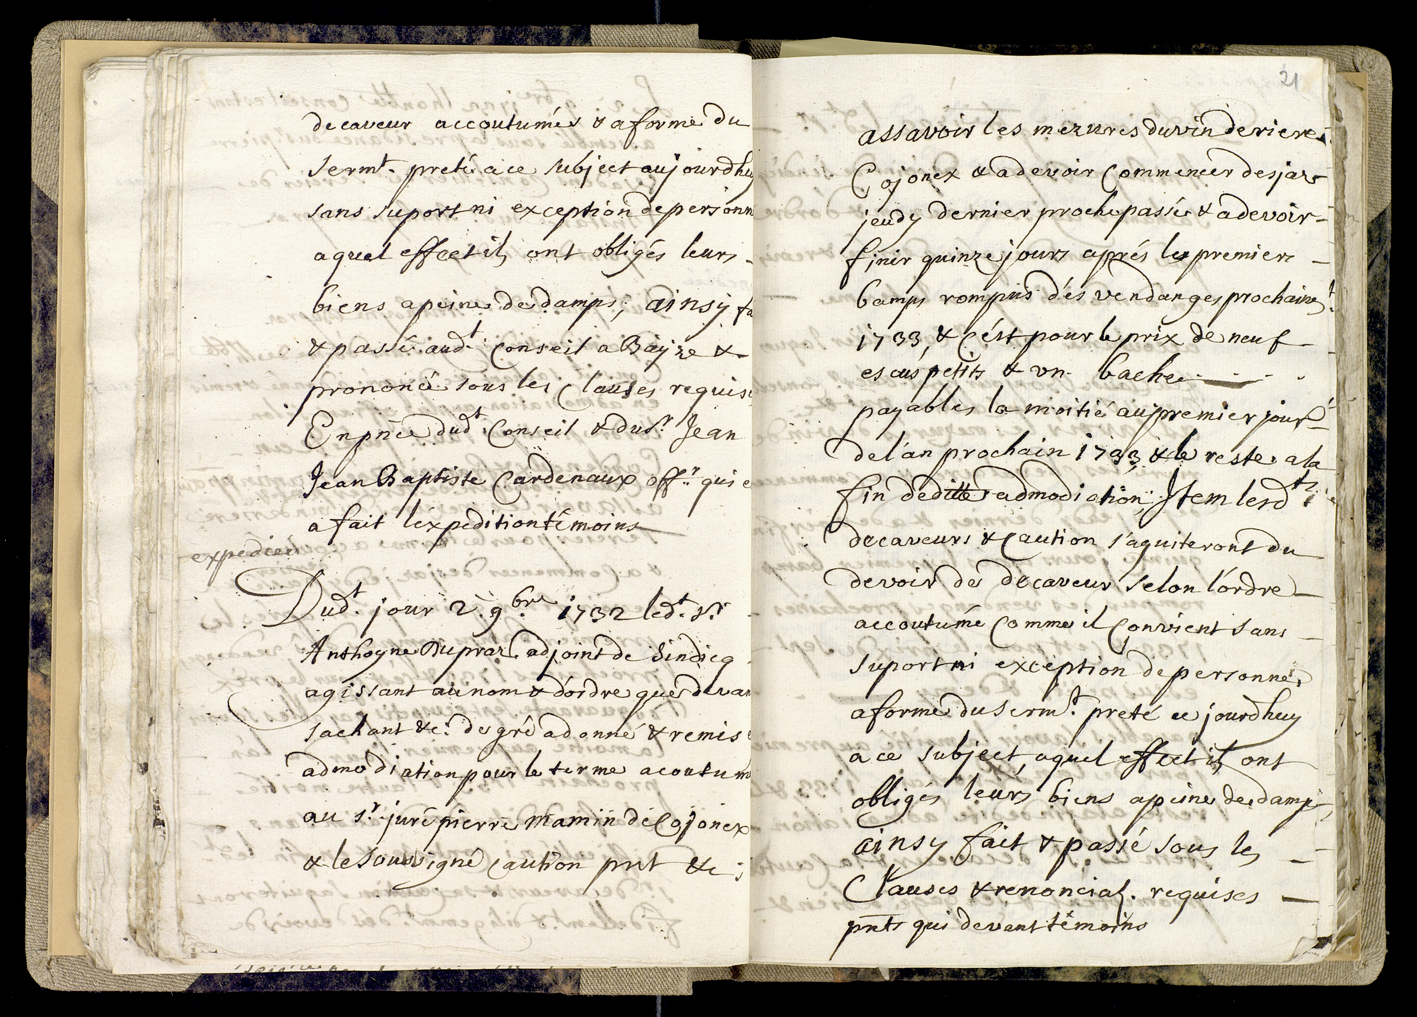 decaveur accoutumés & a forme du
serm.t preté a ce subject aujourdhuy
sans suport ni exception de personn
a quel effect ils ont obligés leurs
biens a peine de damps; ainsy fa
& passé aud.t Conseil a &
prononcé sous les Clauses requis
En pnce dud.t Conseil & du s.r Jean
Jean Baptiste Cardenaux off.r qui e
a fait léxpedition témoins
expedieé
Dud.t jour 2.e 9.bre 1732 led.t s.r
Anthoyne Dupraz adjoint de Sindicq
agissant au nom & dordre que devan
sachant &c.a de gré a donné & remis e
admodiation pour le terme acoutum
au s.r juré pierre Mamin de Cojonex
& le sousigné caution pnt &c
21
assavoir les mezures du vin deriere
Cojonex & a devoir Commencer desja
jeudy dernier proche passé & a devoir
finir quinze jours aprés les premiers
bamps rompus dés vendanges prochaine
1733, & Cést pour le prix de neuf
escus petits & un bache
payables la moitié au premier jour
de lán prochain 1733 & le reste a la
fin de ditte admodiation; Item lesd.ts
decaveurs & Caution s'aquiteront du
devoir de decaveur selon lórdre
accoutumé Comme il Convient sans
suport ni exception de personne
a forme du serm.t preté ce jourdhuy
a ce subject, aquel effect ils ont
obligés leurs biens a peine de damps,
ainsy fait & passé sous les
Clauses & renonciat. requises
pnts qui devant témoins